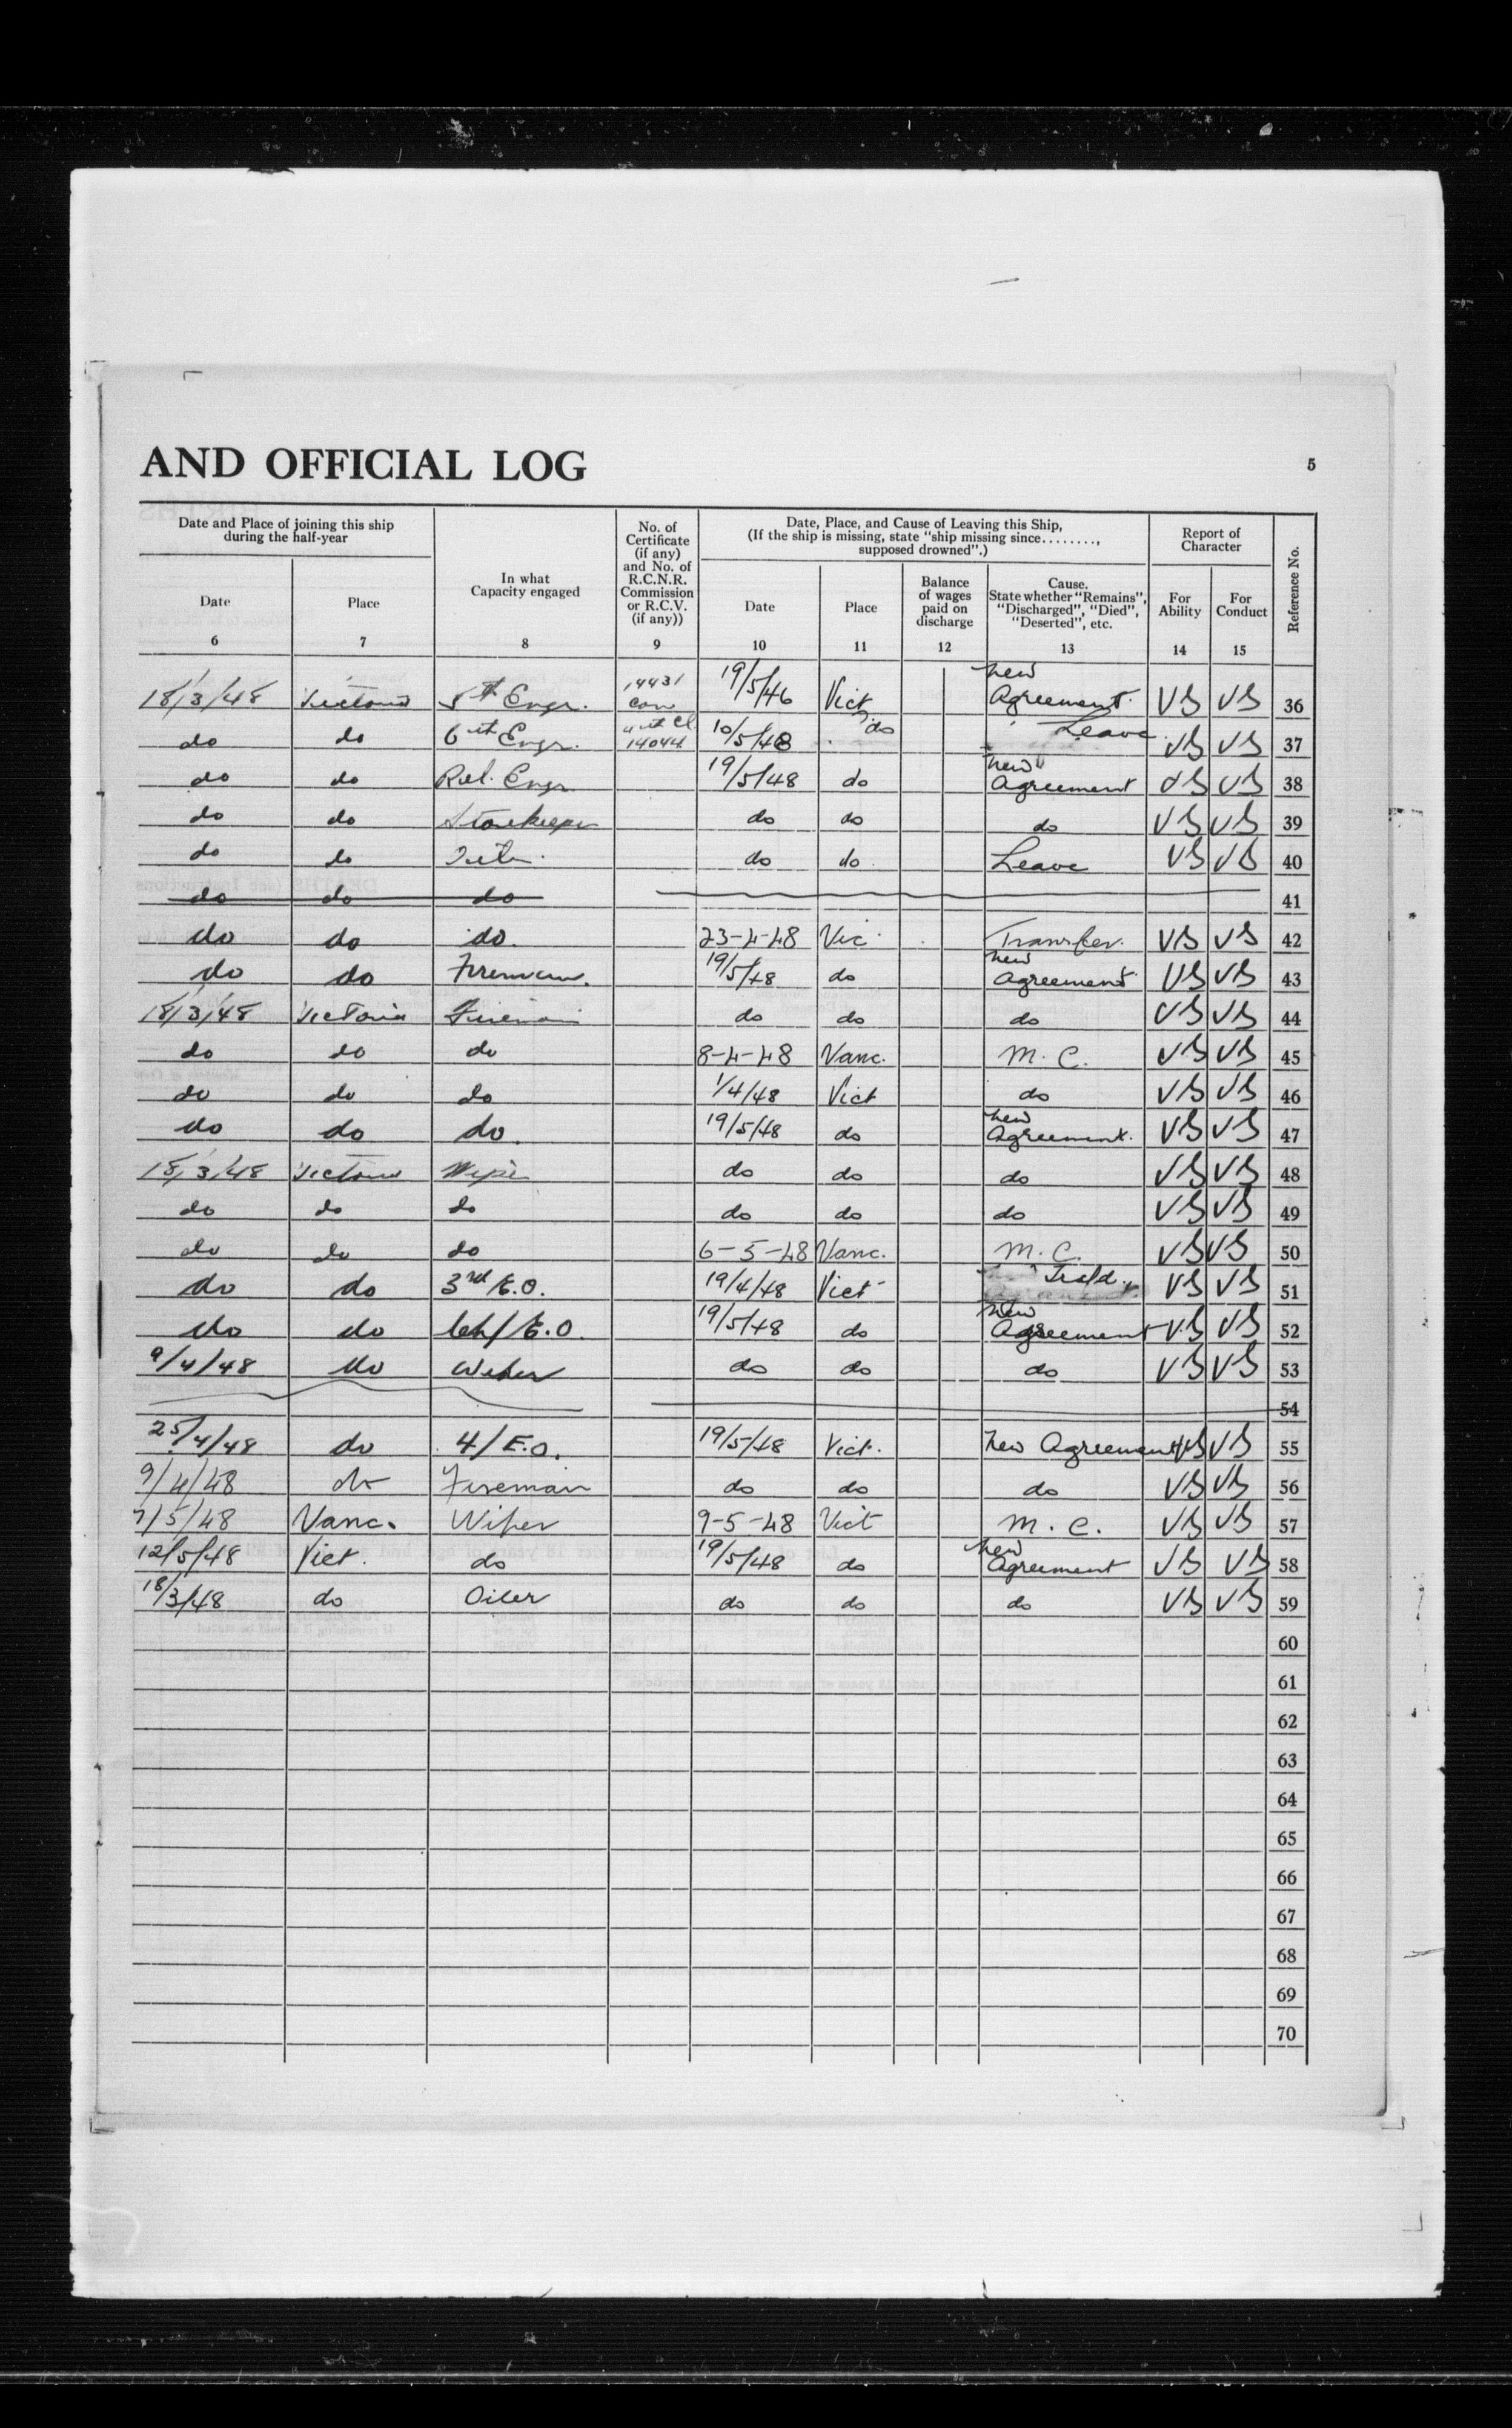 AND OFFICIAL LOG 5
Date and Place of joining this ship
during the half-year
Date
6
Place
7
In what
Capacity engaged
8
No. of
Certificate
(if any)
and No. of
R.C.N.R.
Commission
or R.C.V.
(if any))
9
Date, Place, and Cause of Leaving this Ship,
(If the ship is missing, state "ship missing since........,
supposed drowned".)
Date
10
Place
11
Balance
of wages
paid on
discharge
12
Cause.
State whether "Remains",
"Discharged", "Died",
"Deserted", etc.
13
Report of
Character
For
Ability
14
For
Conduct
15
Reference No.
18/3/48 Victoria 5th Engr. 14431 19/5/46 Vict new Agreement. VG VG 36
do do 6th Engr. 14044 10/5/48 do Leave VG VG 37
do do Rel. Engr. 19/5/48 do new Agreement VG VG 38
do do Storekeeper do do do VG VG 39
do do do do Leave VG VG 40
do do do 41
do do do. 23-4-48 Vic. Transfer. VG VG 42
do do Fireman. 19/5/48 do new Agreement VG VG 43
18/3/48 Victoria Fireman do do do VG VG 44
do do do 8-4-48 Vanc. M.C. VG VG 45
do do do 1/4/48 Vict do VG VG 46
do do do. 19/5/48 do new Agreement. VG VG 47
18/3/48 Victoria Wiper do do do VG VG 48
do do do do do do VG VG 49
do do do 6-5-48 Vanc. M.C. VG VG 50
do do 3rd E.O. 19/4/48 Vict VG VG 51
do do Chf E.O. 19/5/48 do new Agreement VG VG 52
9/4/48 do Wiper do do do VG VG 53
54
25/4/48 do 4/E.O. 19/5/48 Vict. new Agreement VG VG 55
9/4/48 do Fireman do do do VG VG 56
7/5/48 Vanc. Wiper 9-5-48 Vict M.C. VG VG 57
12/5/48 Vict. do 19/5/48 do new Agreement VG VG 58
18/3/48 do Oiler do do do VG VG 59
60
61
62
63
64
65
66
67
68
69
70